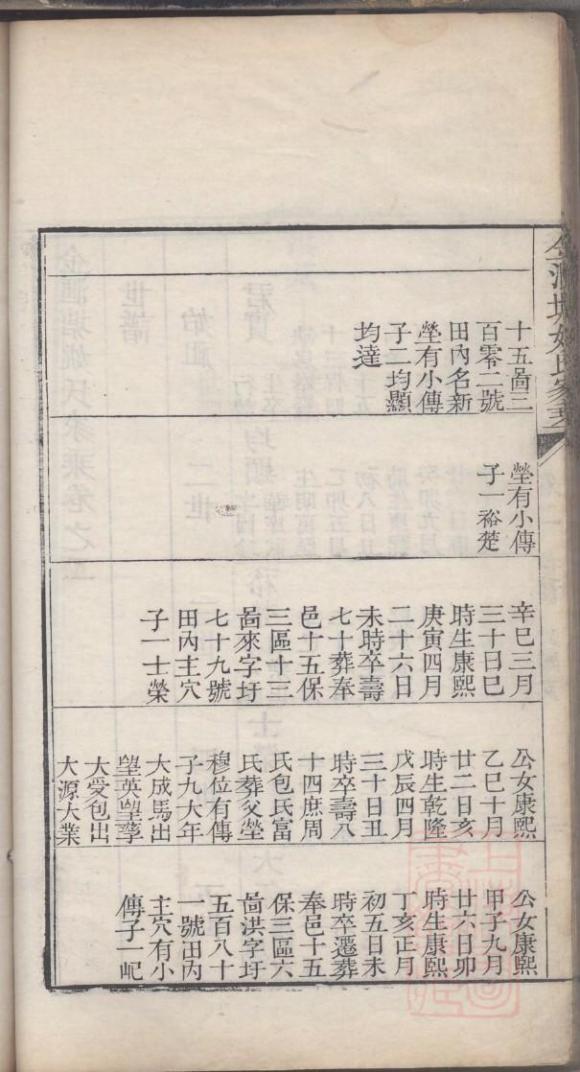 十五啚三
百零二號
田內名新
塋有小傳
子二均顯
均達
塋有小傳
子一裕楚
辛巳三月
三十日巳
時生康熙
庚寅四月
二十六日
未時卒壽
七十葬奉
邑十五保
三區十三
啚來字圩
七十九號
田內主穴
子一士榮
公女康熙
乙巳十月
廿二日亥
時生乾隆
戊辰四月
三十日丑
時卒壽八
十四庶周
氏包氏富
氏葬父塋
穆位有傳
子九大年
大成馬出
望英望孳
大受包出
大源大業
公女康熙
甲子九月
廿六日卯
時生康熙
丁亥正月
初五日未
時卒遷葬
奉邑十五
保三區六
啚洪字圩
五百八十
一號田內
主穴有小
傳子一屺